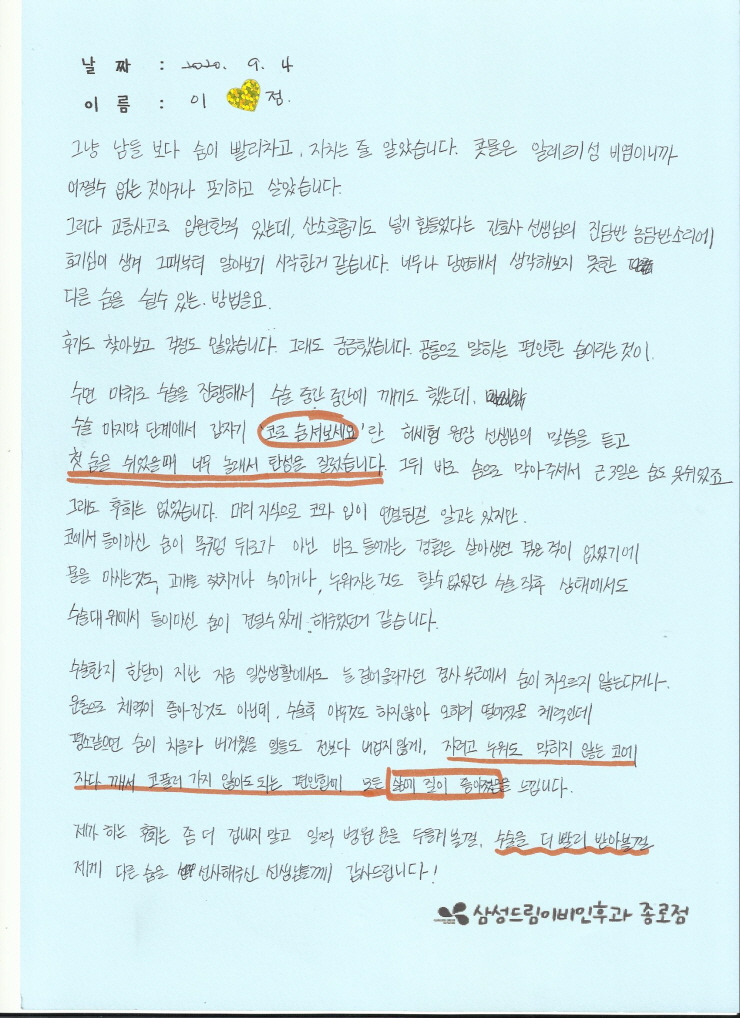 날 짜 : 2020. 9. 4
이 름 : 이 정.
그냥 남들 보다 숨이 빨리차고, 지치는 줄 알았습니다. 콧물은 알레르기성 비염이니까
어쩔수 없는 것이구나 포기하고 살았습니다.
그러다 교통사고로 입원한적 있는데, 산소호흡기도 넣기 힘들었다는 간호사 선생님의 진담반 농담반소리에
호기심이 생겨 그때부터 알아보기 시작한거 같습니다. 너무나 당연해서 생각해보지 못한
다른 숨을 쉴수 있는. 방법을요.
후기도 찾아보고 걱정도 많았습니다. 그래도 궁금했습니다. 공통으로 말하는 편안한 숨이라는 것이.
수면 마취로 수술을 진행해서 수술 중간 중간에 깨기도 했는데.
수술 마지막 단계에서 갑자기 '코로 숨쉬보세요'란 허세형 원장 선생님의 말씀을 듣고
첫 숨을 쉬었을때 너무 놀래서 탄성을 질렀습니다. 그뒤 바로 솜으로 막아주셔서 근 3일은 숨도 못쉬었죠
그래도 후회는 없었습니다. 머리 지식으로 코와 입이 연결된걸 알고는 있지만.
코에서 들이마신 숨이 목구멍 뒤로가 아닌 바로 들어가는 경험은 살아생전 겪은 적이 없었기에
물을 마시는것도, 고개를 젖히거나 숙이거나, 누워자는것도 할수 없었던 수술 직후 상태에서도
수술대 위에서 들이마신 숨이 견딜수 있게 해주었던거 같습니다.
수술한지 한달이 지난 지금 일상생활에서도 늘 걸어올라가던 경사 부근에서 숨이 차오르지 않는다거나.
운동으로 체력이 좋아진것도 아닌데, 수술후 아무것도 하지않아 오히려 떨어졌을 체력인데
평소같으면 숨이 차올라 버거웠을 일들도 전보다 버겁지 않게, 자려고 누워도 막히지 않는 코에
자다 깨서 코풀러 가지 않아도 되는 편안함에 모든 삶에 질이 좋아졌음을 느낍니다.
제가 하는 후회는 좀 더 겁내지 말고 일찍 병원 문을 두들겨볼껄, 수술을 더 빨리 받아볼껄
제게 다른 숨을 선사해주신 선생님들께 감사드립니다!
삼성드림이비인후과 종로점